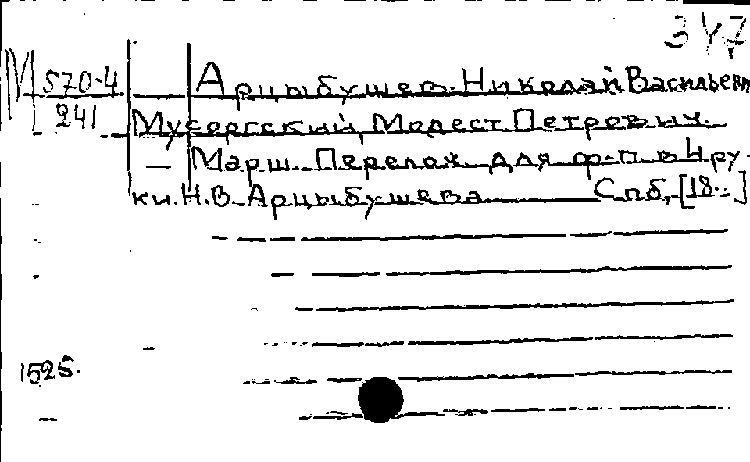 347
М 570-4 Арцыбушев Николай Васильевич
241 Мусоргский, Модест Петрович.
— Марш. Перелож. для ф-п. в 4 ру-
ки. Н.В. Арцыбушева Спб, [18..]
1525.